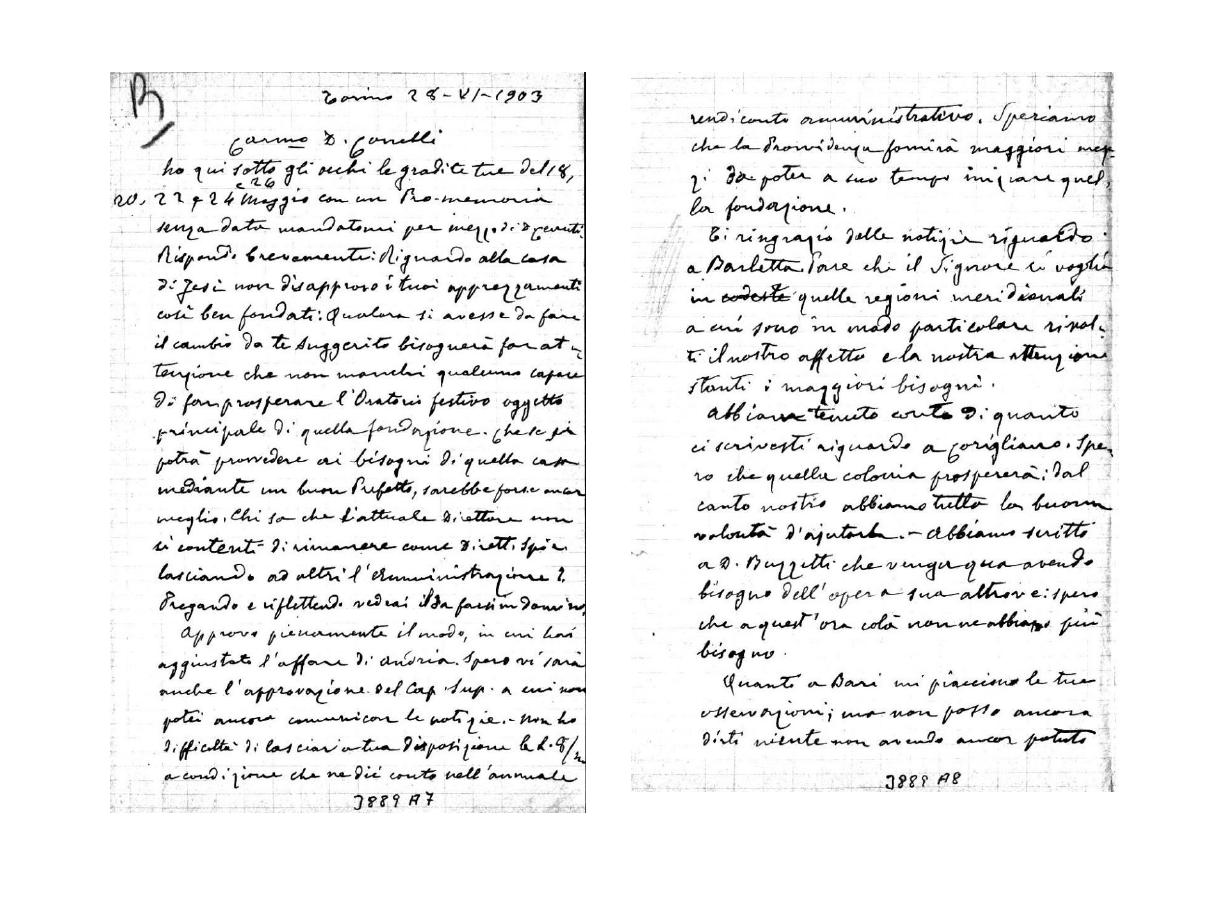 B
Torino 28-VI-1903
Carmo D. Conelli
ho qui sotto gli occhi le gradite tue del 18,
e 26
20, 22 e 24 Maggio con un Pro-memoria
senza data mandatomi per mezzo di D.
Rispondo brevemente: Riguardo alla casa
di Jesi non disapprovo i tuoi apprezzamenti
così ben fondati: Qualora si avesse da fare
il cambio da te suggerito bisognerà far at-
tenzione che non manchi qualcuno capace
di far prosperare l'Oratorio festivo oggetto
principale di quella fondazione. Che se si
potrà provvedere ai bisogni di quella casa
mediante un buon Prefetto, sarebbe forse ancor
meglio. Chi sa che l'attuale Direttore non
si contenti di rimanere come Dirett. Spir.
lasciando ad altri l'Amministrazione?
Pregando e riflettendo vedrai il da farsi in Domino.
Approvo pienamente il modo, in cui hai
aggiustato l'affare di Andria. Spero vi sarà
anche l'approvazione del Cap. Sup. a cui non
potei ancora comunicar le notizie. - Non ho
difficoltà di lasciar a tua disposizione le L. 8/m
a condizione che ne dii conto nell'annuale
J889 A7
rendiconto amministrativo. Speriamo
che la Provvidenza fornirà maggiori mez-
zi da poter a suo tempo iniziare quel-
la fondazione.
Ti ringrazio delle notizie riguardo
a Barletta. Pare che il Signore ci voglia
in codeste quelle regioni meridionali
a cui sono in modo particolare rivol-
ti il nostro affetto e la nostra attenzione
stanti i maggiori bisogni.
Abbiam tenuto conto di quanto
ci scrivesti riguardo a Corigliano. Spe-
ro che quella colonia prospererà: dal
canto nostro abbiamo tutta la buona
volontà d'ajutarla. - Abbiamo scritto
a D. Buzzetti che venga qua avendo
bisogno dell'opera sua altrove: spero
che a quest'ora colà non ne abbiano più
bisogno.
Quanto a Bari mi piacciono le tue
osservazioni; ma non posso ancora
dirti niente non avendo ancor potuto
J889 A8